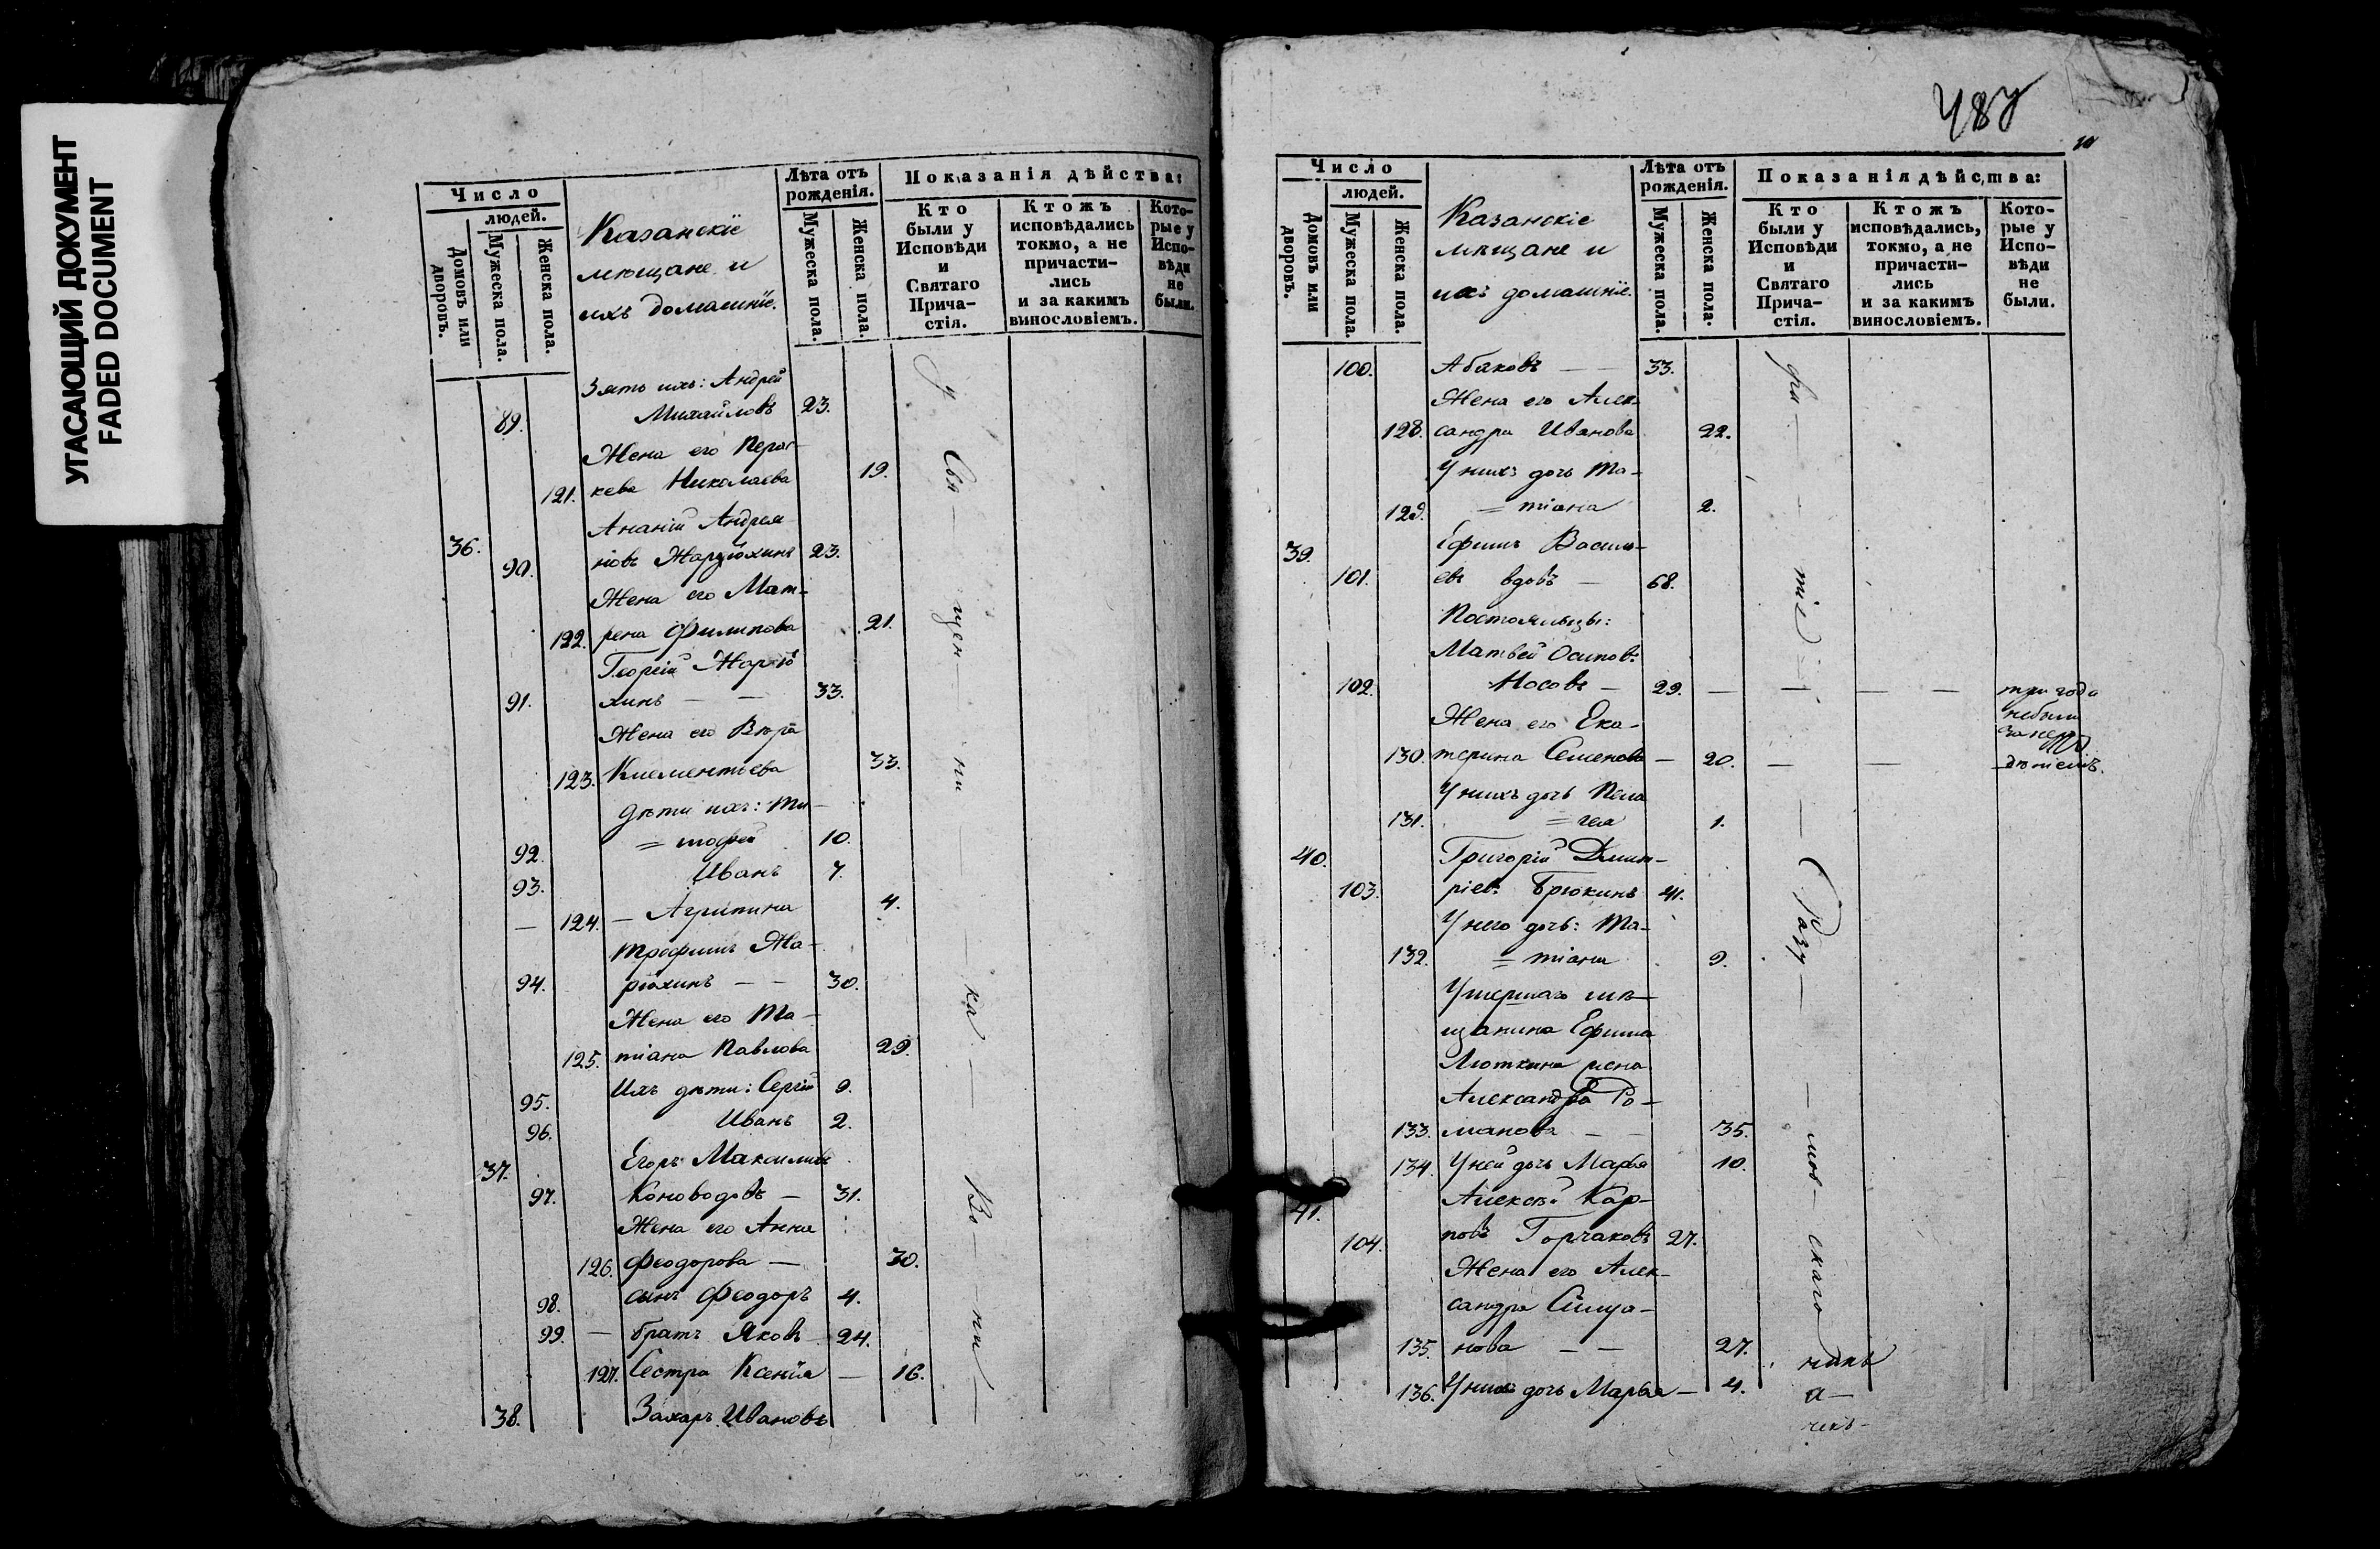 УГАСАЮЩИЙ ДОКУМЕНТ
FADED DOCUMENT
Число
людей.
Домовъ или дворовъ.
Мужеска пола.
Женска пола.
Казанскіе
мѣщане и
ихъ домашніе.
Лѣта отъ рожденія.
Мужеска пола.
Женска пола.
Показанія дѣйства:
Кто были у Исповѣди и Святаго Причастія.
Ктожъ исповѣдались токмо, а не причастились и за какимъ винословіемъ.
Которые у Исповѣди не были.
Зять ихъ: Андрей
89. Михайловъ 23.
Жена его Парас-
121. кева Николаева 19.
36. Ананій Андрея-
90. новъ 23.
Жена его Мат-
122. рена Филипова 21.
Георгій
91. хинъ — — 33.
Жена его Вѣра
123. Клементьева 33.
Дѣти ихъ: Ти-
92. = мофей 10.
93. Иванъ 7.
— 124. — Агрипина 4.
Трофимъ
94. рюхинъ — — 30.
Жена его Та-
125. тіана Павлова 29.
95. Ихъ дѣти: Сергій 9.
96. Иванъ 2.
37. Егоръ Максимовъ
97. Коноводовъ — 31.
Жена его Анна
126. Феодорова — 30.
98. сынъ Феодоръ 4.
99. — братъ Яковъ 24.
127. Сестра Ксенія — 16.
38. Захаръ Ивановъ
Свя — щен — ни — ка — Ко — ни —
487
Число
людей.
Домовъ или дворовъ.
Мужеска пола.
Женска пола.
Казанскіе
мѣщане и
ихъ домашніе.
Лѣта отъ рожденія.
Мужеска пола.
Женска пола.
Показанія дѣйства:
Кто были у Исповѣди и Святаго Причастія.
Ктожъ исповѣдались, токмо, а не причастились и за какимъ винословіемъ.
Которые у Исповѣди не были.
100. Абаковъ — — 33.
Жена его Алек-
128. сандра Иванова 22.
У нихъ дочь Та-
129. = тіана 2.
39. Ефимъ Василь-
101. евъ вдовъ — 68.
Постояльцы:
Матвей Осиповъ
102. Носовъ — 29. — — — — три года
небыли
Жена его Ека-
130. терина Семенова — 20. — —
У нихъ дочь Пела
131. = гея 1.
40. Григорій Дмит-
103. ріевъ Брюкинъ 41.
У него дочь: Та-
132. = тіана 9.
Умершаго мѣ-
щанина Ефима
Люткина жена
Александра Ро-
133. манова — — 35.
134. У ней дочь Марья 10.
41. Алексѣй Кар-
104. повъ Горчаковъ 27.
Жена его Алек-
сандра
135. нова — — 27.
136. У нихъ дочь Марья — 4.
Разу — мов — скаго